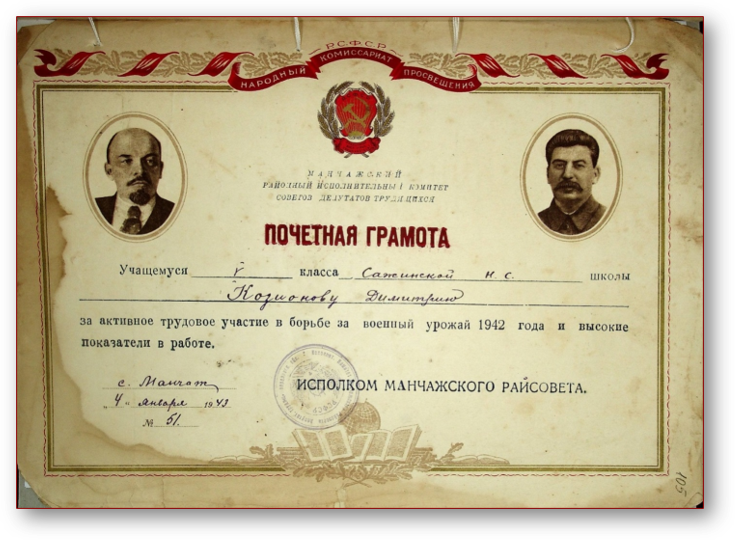 РСФСР
НАРОДНЫЙ КОМИССАРИАТ ПРОСВЕЩЕНИЯ
МАНЧАЖСКИЙ
РАЙОННЫЙ ИСПОЛНИТЕЛЬНЫ Й КОМИТЕТ
СОВЕТОВ ДЕПУТАТОВ ТРУДЯЩИХСЯ
ПОЧЕТНАЯ ГРАМОТА
Учащемуся V класса Сажинской н. с. школы
Козионову Димитрию
за активное трудовое участие в борьбе за военный урожай 1942 года и высокие
показатели в работе.
с. Манчаж
ИСПОЛКОМ МАНЧАЖСКОГО РАЙСОВЕТА.
„4" января 1943
№ 51.
105